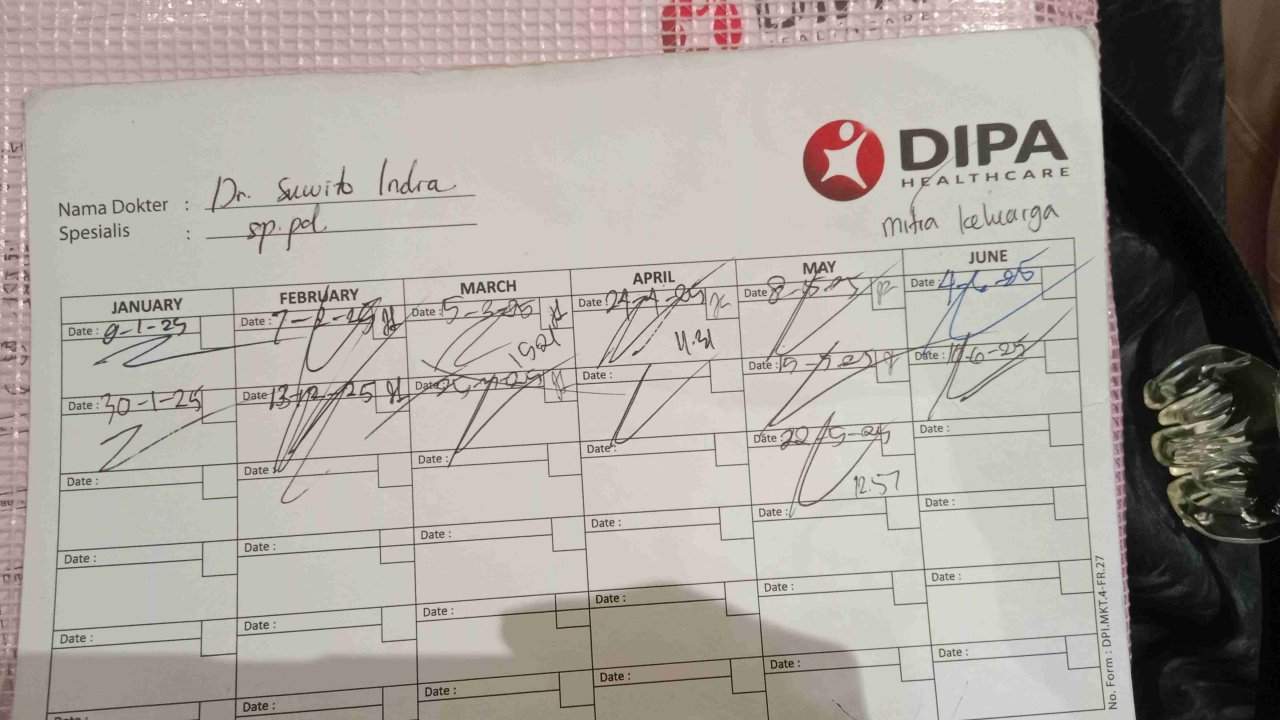 DIPA
HEALTHCARE
Nama Dokter : Dr. Suwito Indra
Spesialis : sp.pd
mitra keluarga
JANUARY FEBRUARY MARCH APRIL MAY JUNE
Date : 9-1-25 Date : 7-2-25 Date : 5-3-25 Date : 24-4-25 Date : 8-5-25 Date : 4-6-25
Date : 30-1-25 Date : 13-2-25 Date : Date : Date : 15-5-25 Date : 11-6-25
Date : Date : Date : Date : Date : 22-5-25 Date :
12.57
Date : Date : Date : Date : Date : Date :
Date : Date : Date : Date : Date : Date :
Date : Date : Date : Date : Date : Date :
No. Form : DPI.MKT.4-FR.27